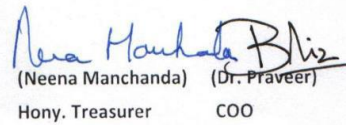 Neena Manchanda
(Neena Manchanda) (Dr. Praveer)
Hony. Treasurer COO